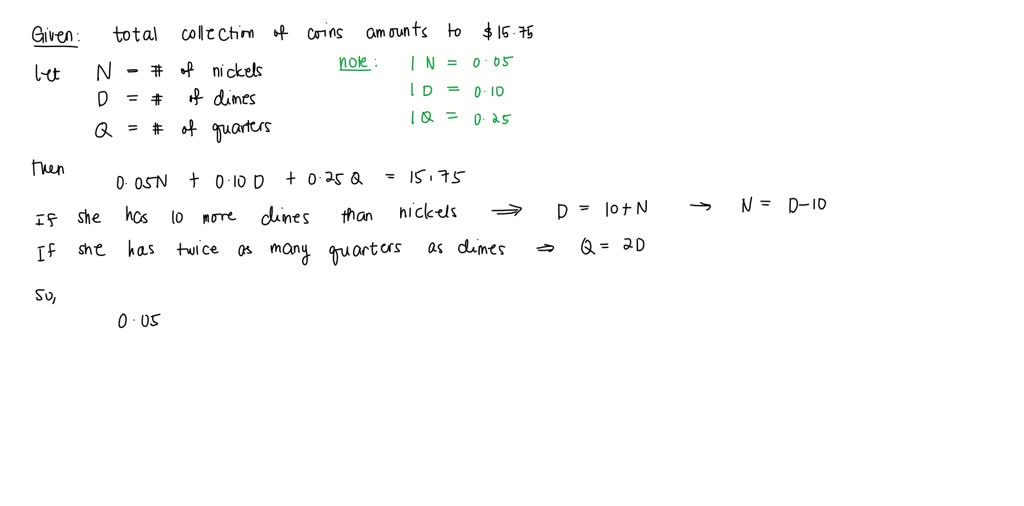 Given: total collection of coins amounts to $15.75
let N - # of nickels note: 1 N = 0.05
D = # of dimes 1 D = 0.10
Q = # of quarters 1 Q = 0.25
then
0.05N + 0.10 D + 0.25 Q = 15.75
If she has 10 more dimes than nickels ⇒ D = 10+N → N = D-10
If she has twice as many quarters as dimes ⇒ Q = 2D
so,
0.05